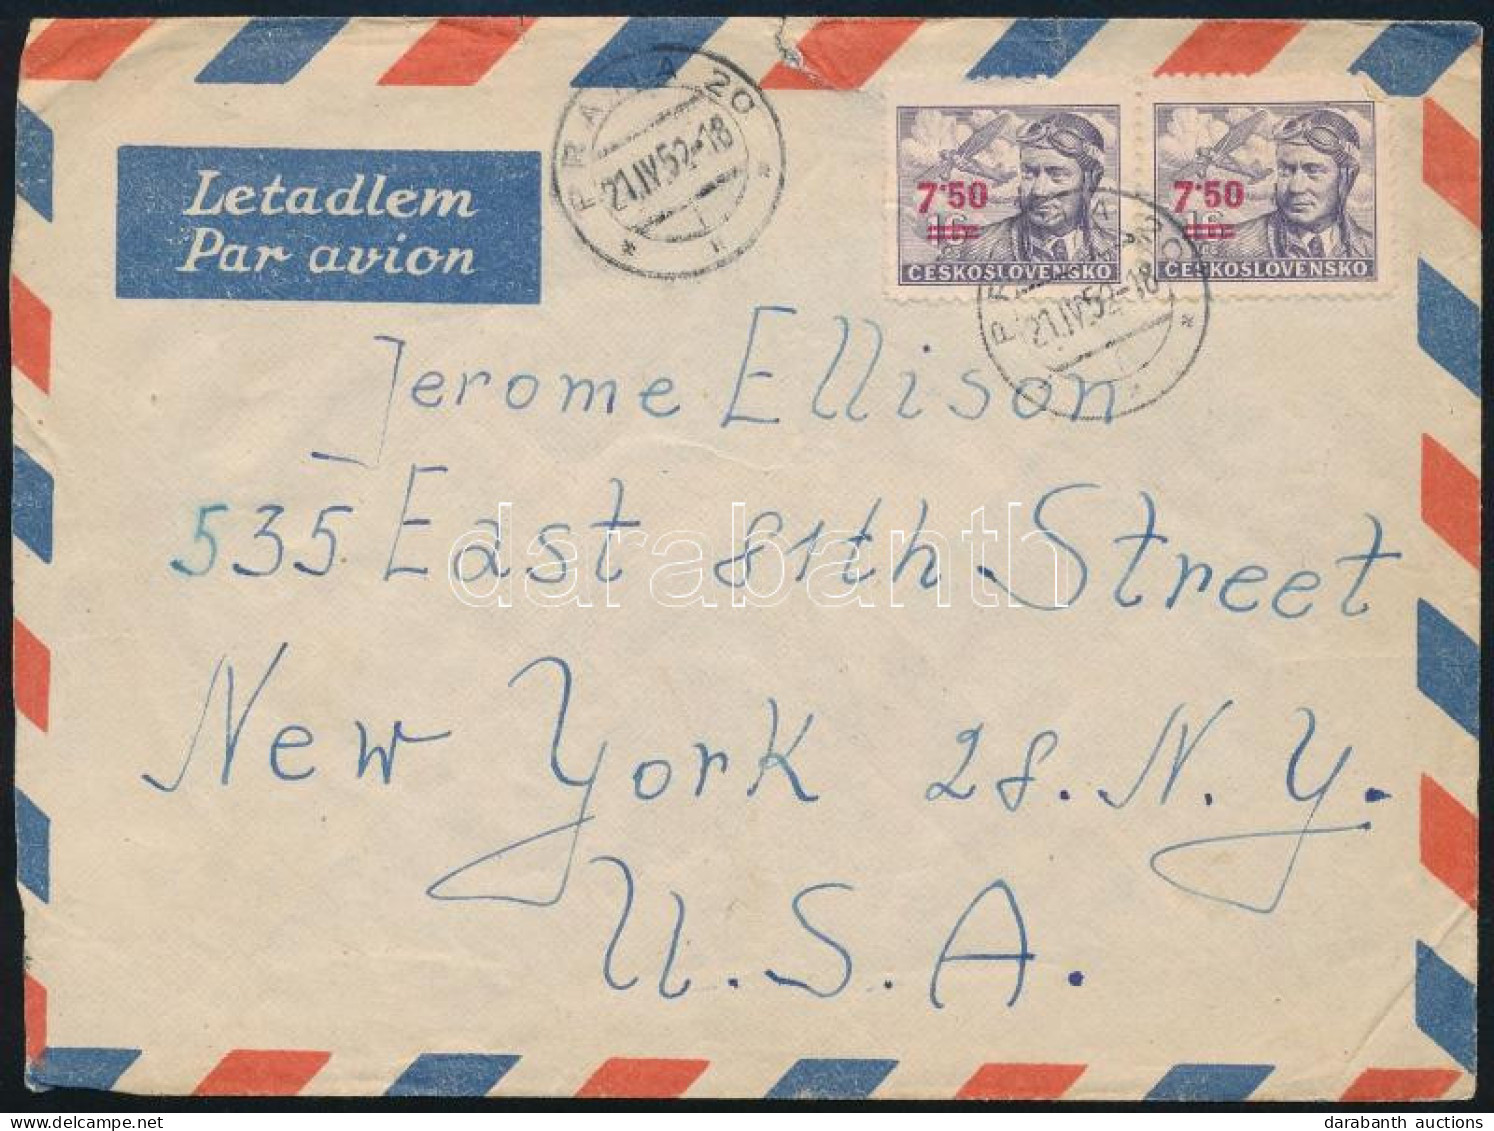 Letadlem
Par avion
PRAHA 20
21.IV.52-18
7·50
16
ČESKOSLOVENSKO
7·50
16
ČESKOSLOVENSKO
PRAHA 20
21.IV.52-18
Jerome Ellison
535 East 81th Street
New York 28. N. Y.
U.S.A.
darabanth
darabanth auctions